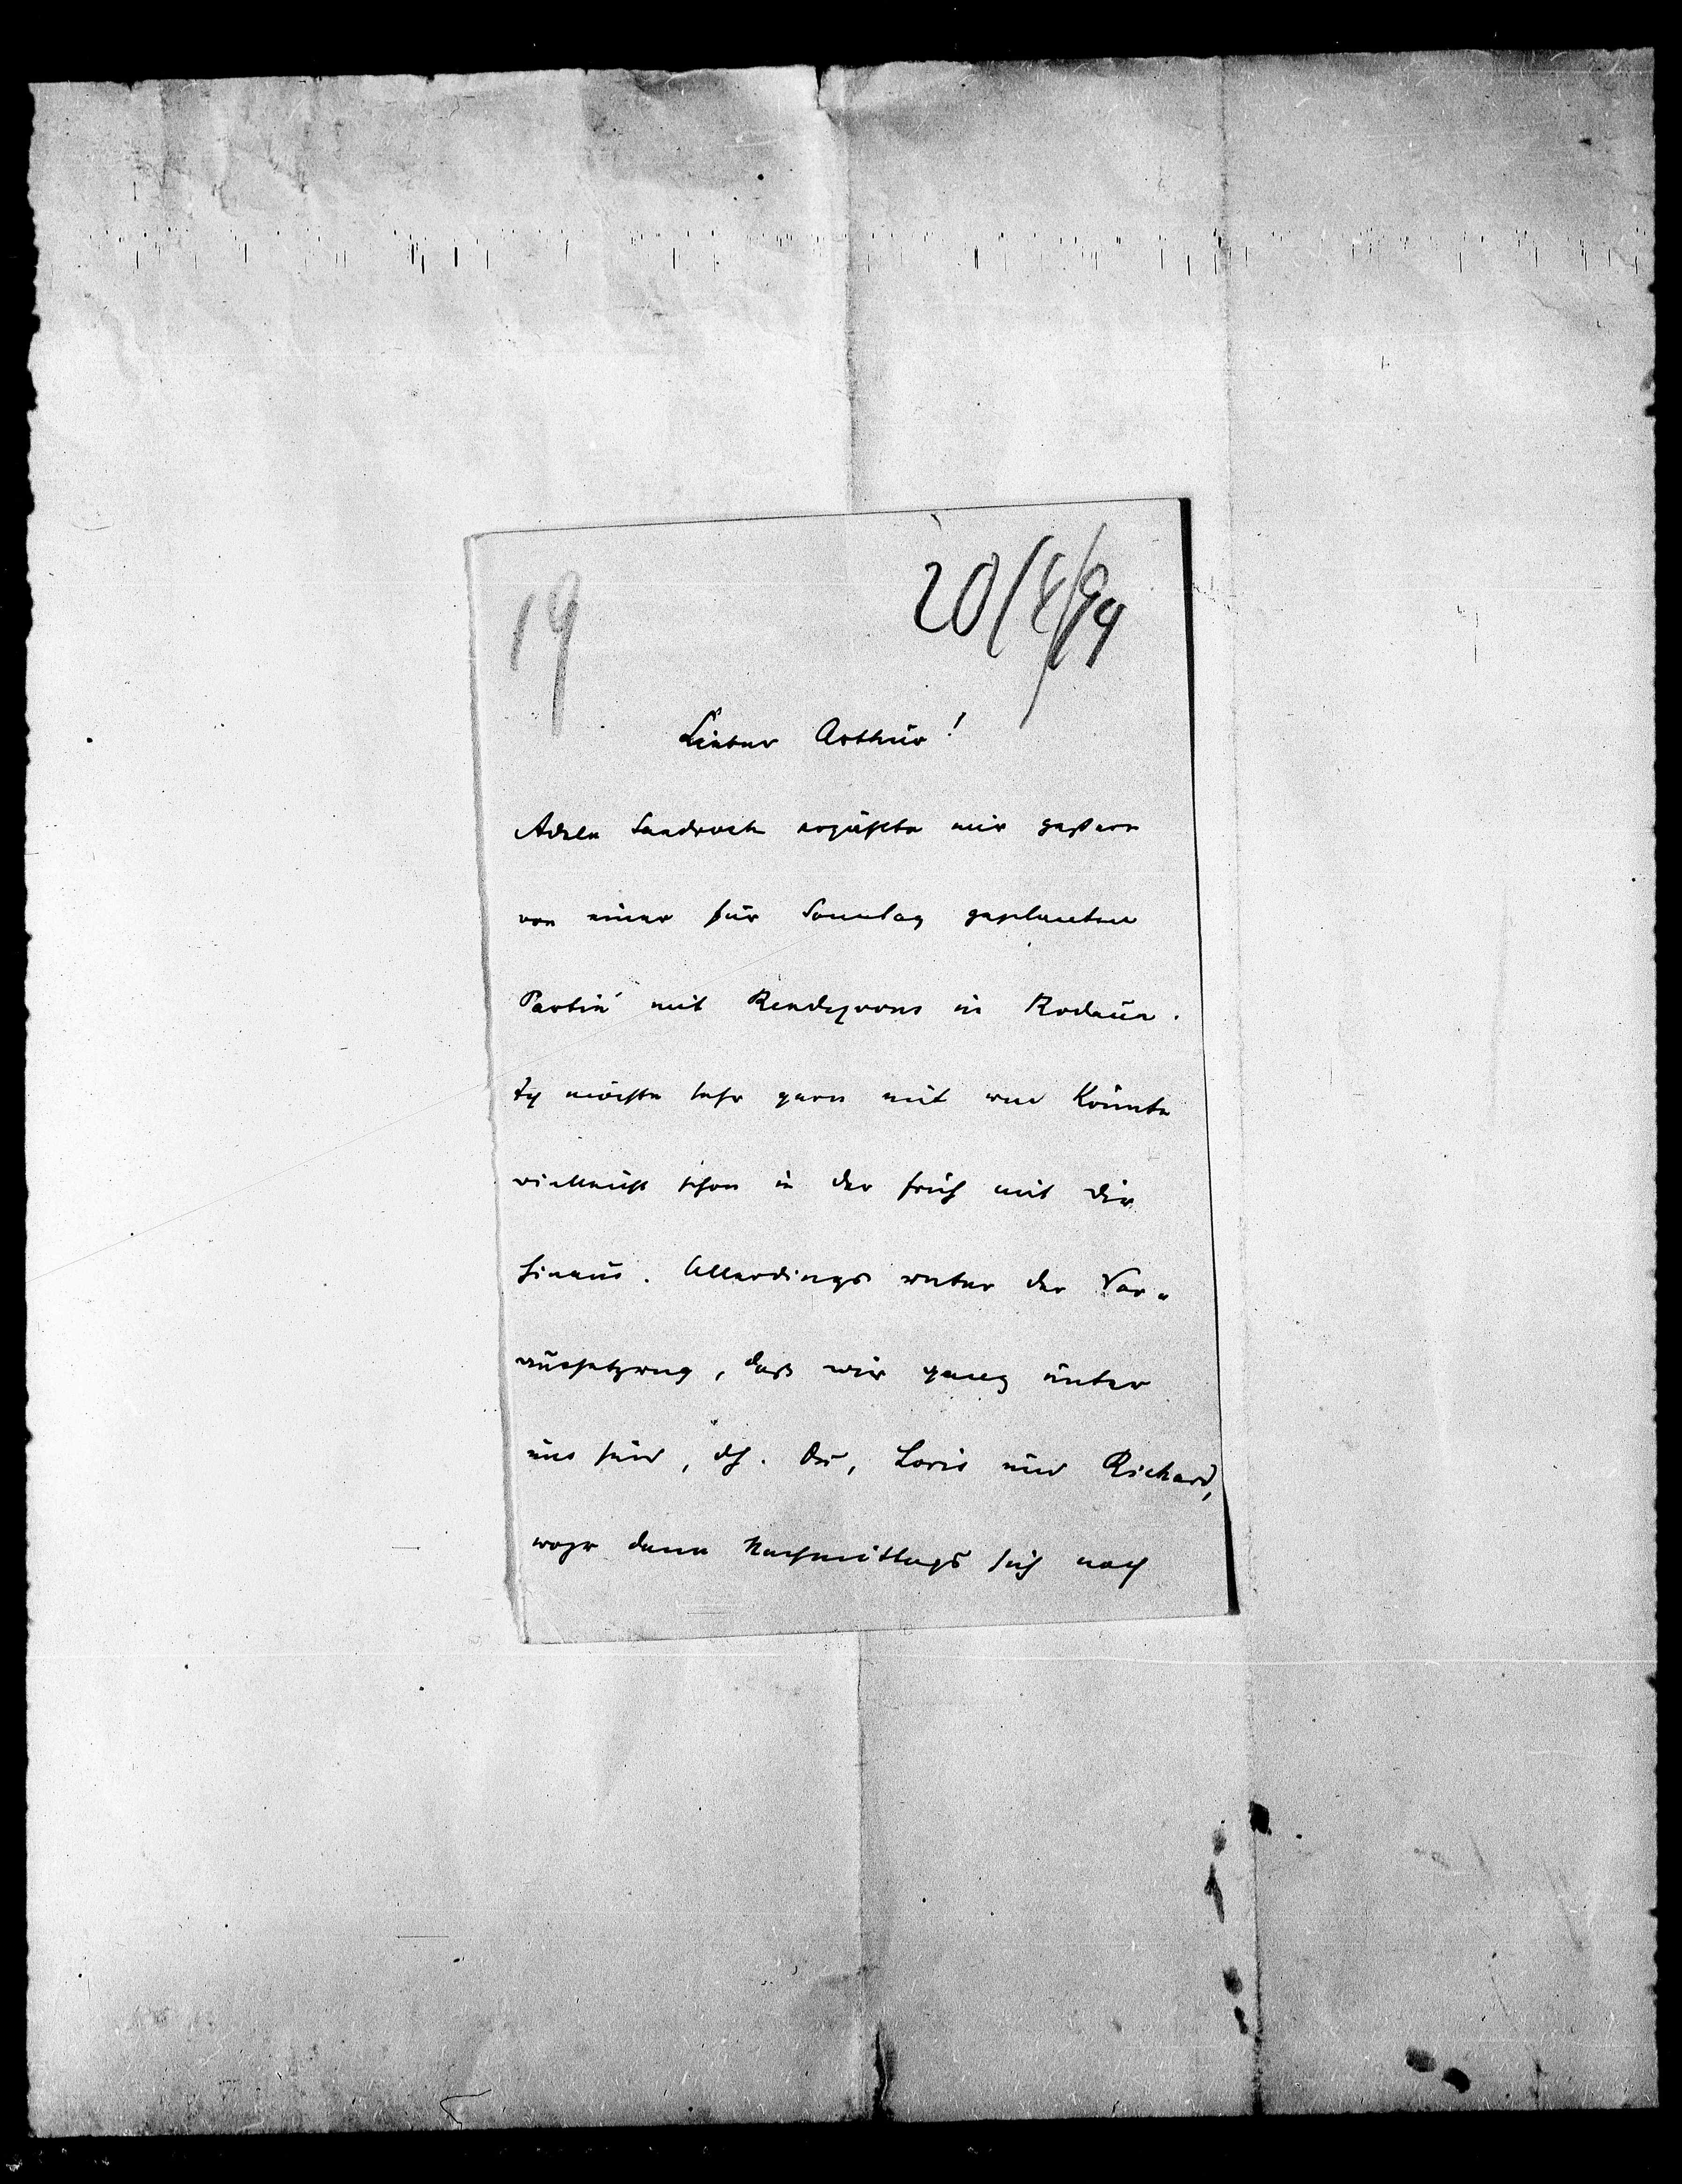 19
20/4/94
Lieber Arthur!
Adele Sandrock erzählte mir gestern
von einer für Sonntag geplanten
Partie mit Rendezvous in Rodaun.
Ich möchte sehr gern mit und könnte
vielleicht schon in der früh mit dir
hinaus. Allerdings unter der Vor-
aussetzung, daß wir ganz unter
uns sind, dh. Du, Loris und Richard,
wozu dann Nachmittags sich noch